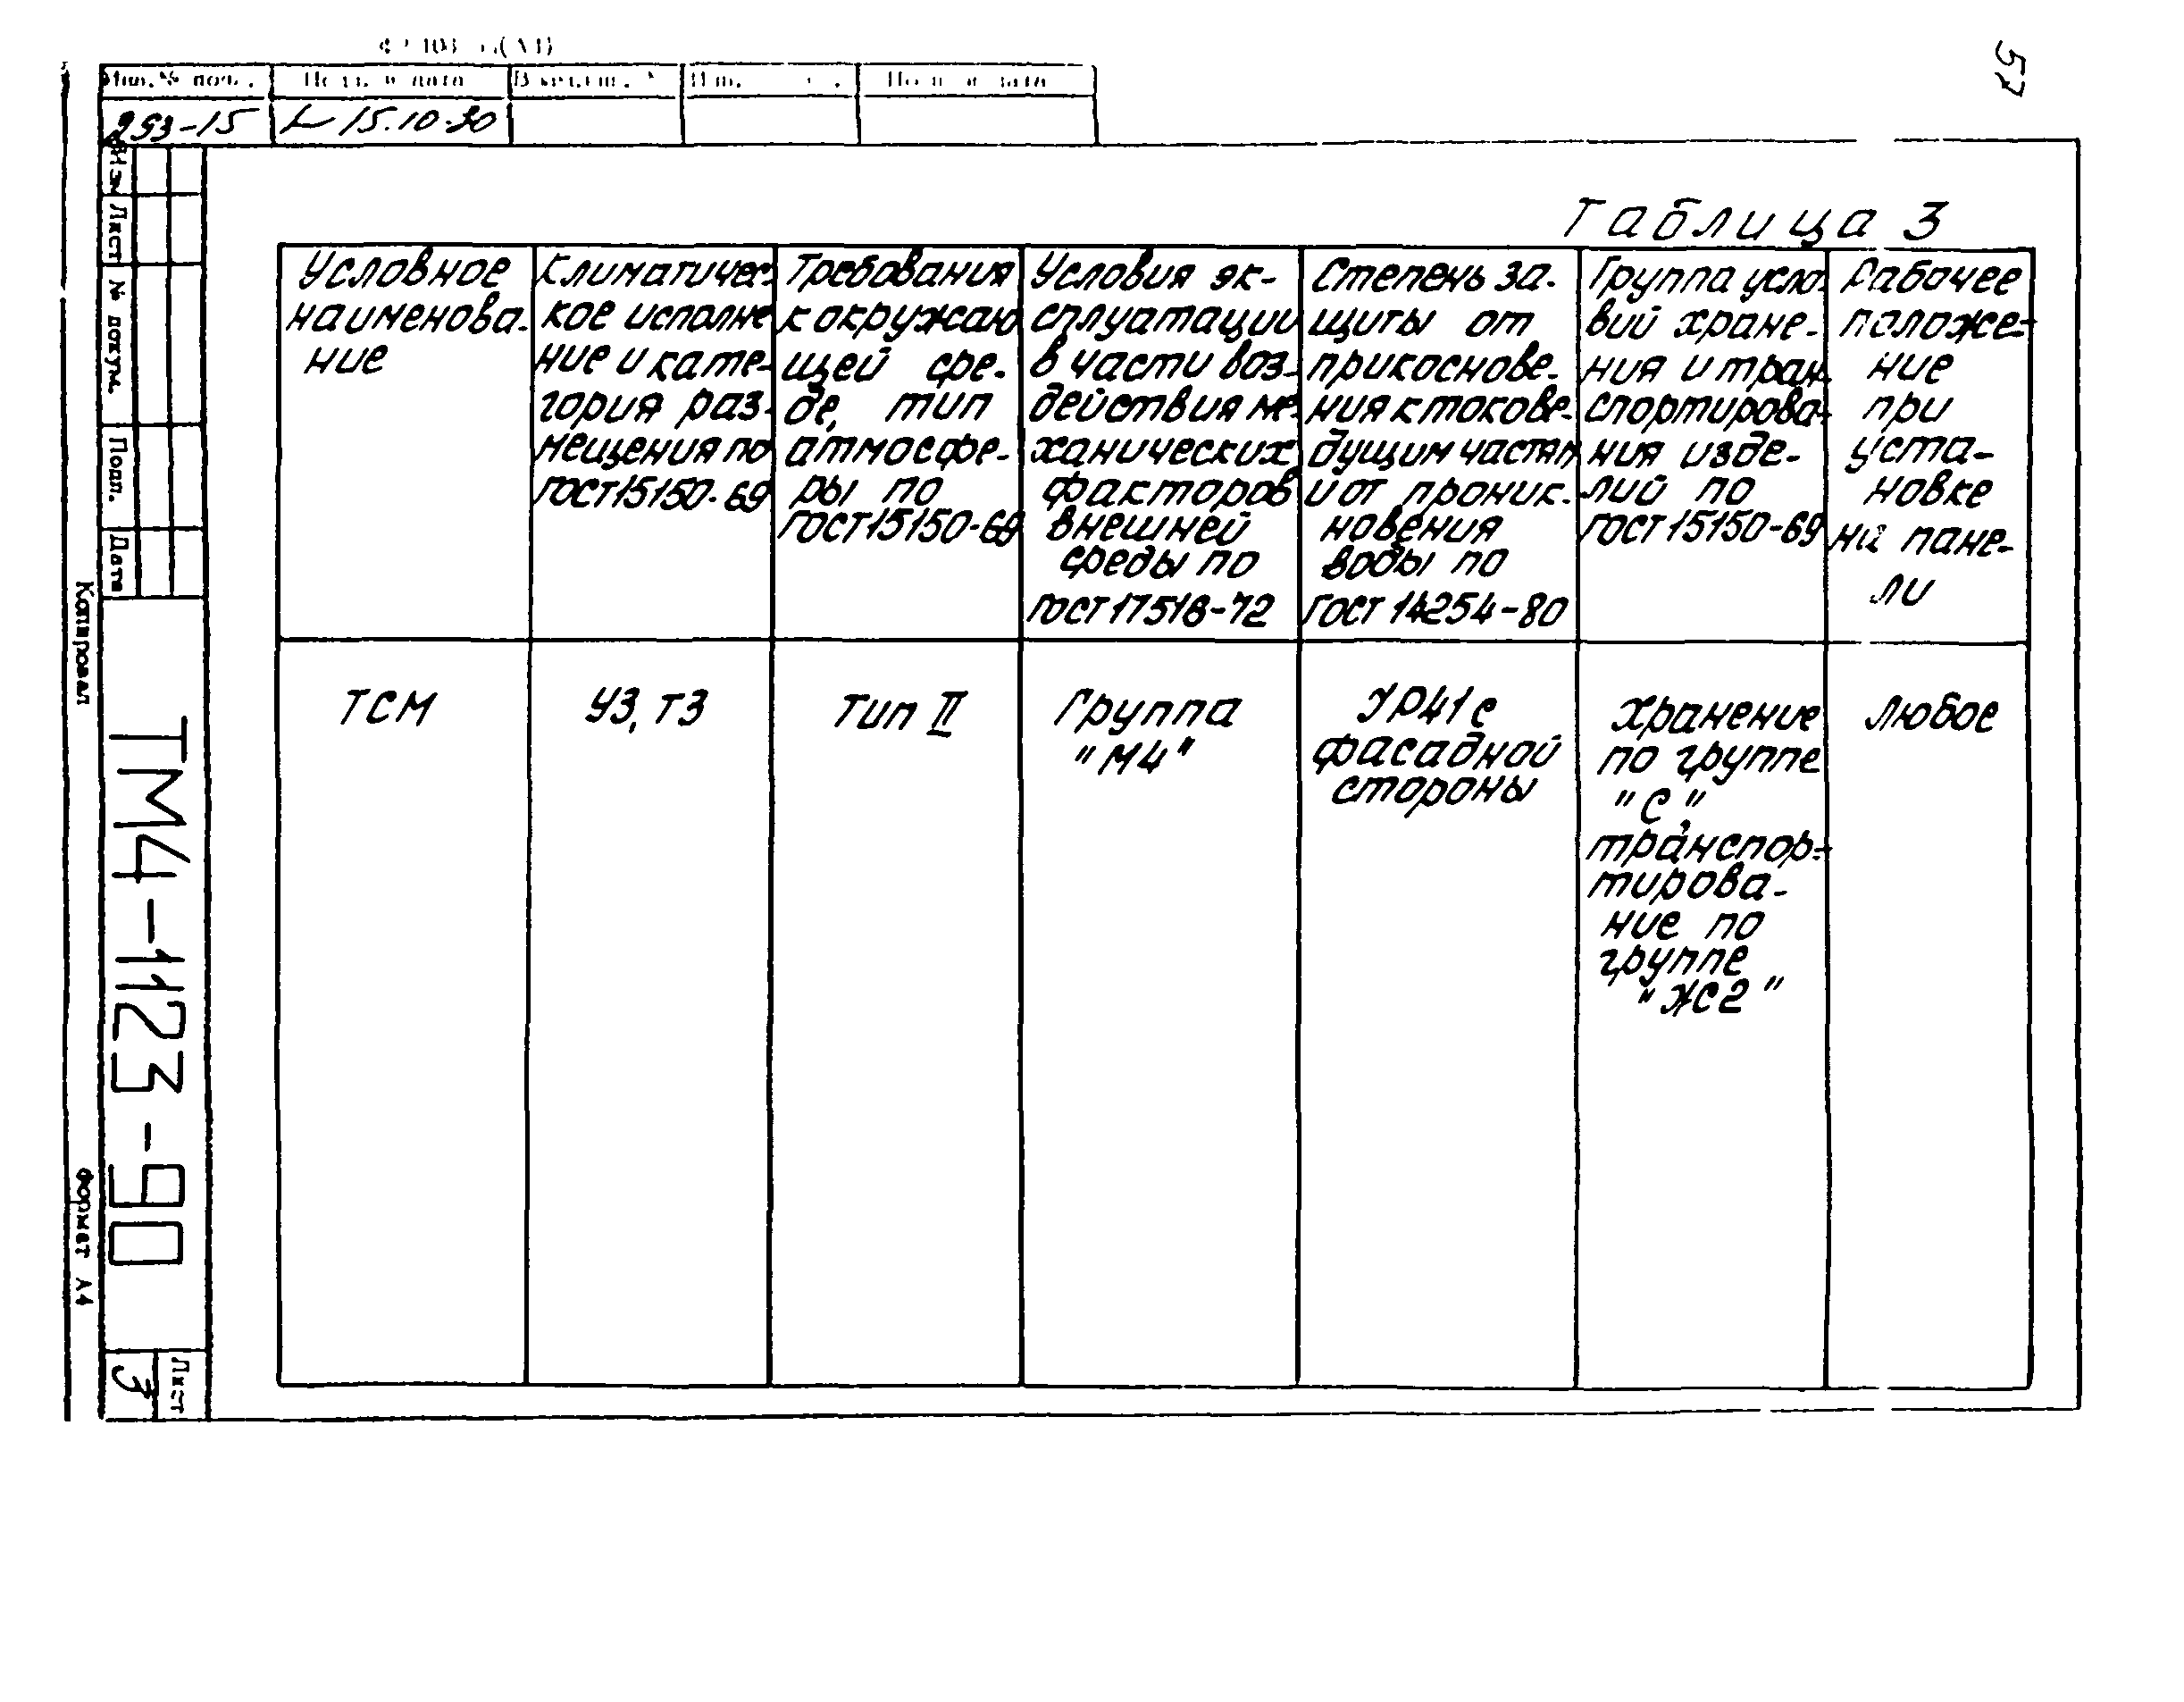 57
Подп. и дата
253-15
15.10.90
Изм
Лист
№ докум.
Подп.
Дата
Таблица 3
Условное
наименова-
ние
Климатичес-
кое исполне
ние и кате-
гория раз-
мещения по
ГОСТ15150-69
Требования
к окружаю
щей сре-
де, тип
атмосфе-
ры по
ГОСТ15150-69
Условия эк-
сплуатации
в части воз-
действия ме-
ханических
факторов
внешней
среды по
ГОСТ17516-72
Степень за-
щиты от
прикоснове-
ния к токове-
дущим частям
и от проник-
новения
воды по
ГОСТ 14254-80
Группа усло-
вий хране-
ния и тран-
спортирова-
ния изде-
лий по
ГОСТ 15150-69
Рабочее
положе-
ние
при
уста-
новке
на пане-
ли
ТСМ
У3, Т3
Тип II
Группа
"М4"
УР41 с
фасадной
стороны
Хранение
по группе
"С",
транспор-
тирова-
ние по
группе
"Ж2"
любое
ТМ4-1123-90
Лист
3
Копировал
Формат А4